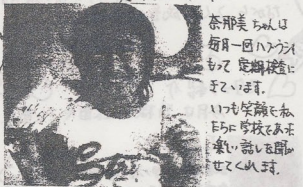 奈那美ちゃんは
毎月一回ハナウライ
もって定期検査に
きています。
いつも笑顔で私
たちに学校であった
楽しい話しを聞か
せてくれます。